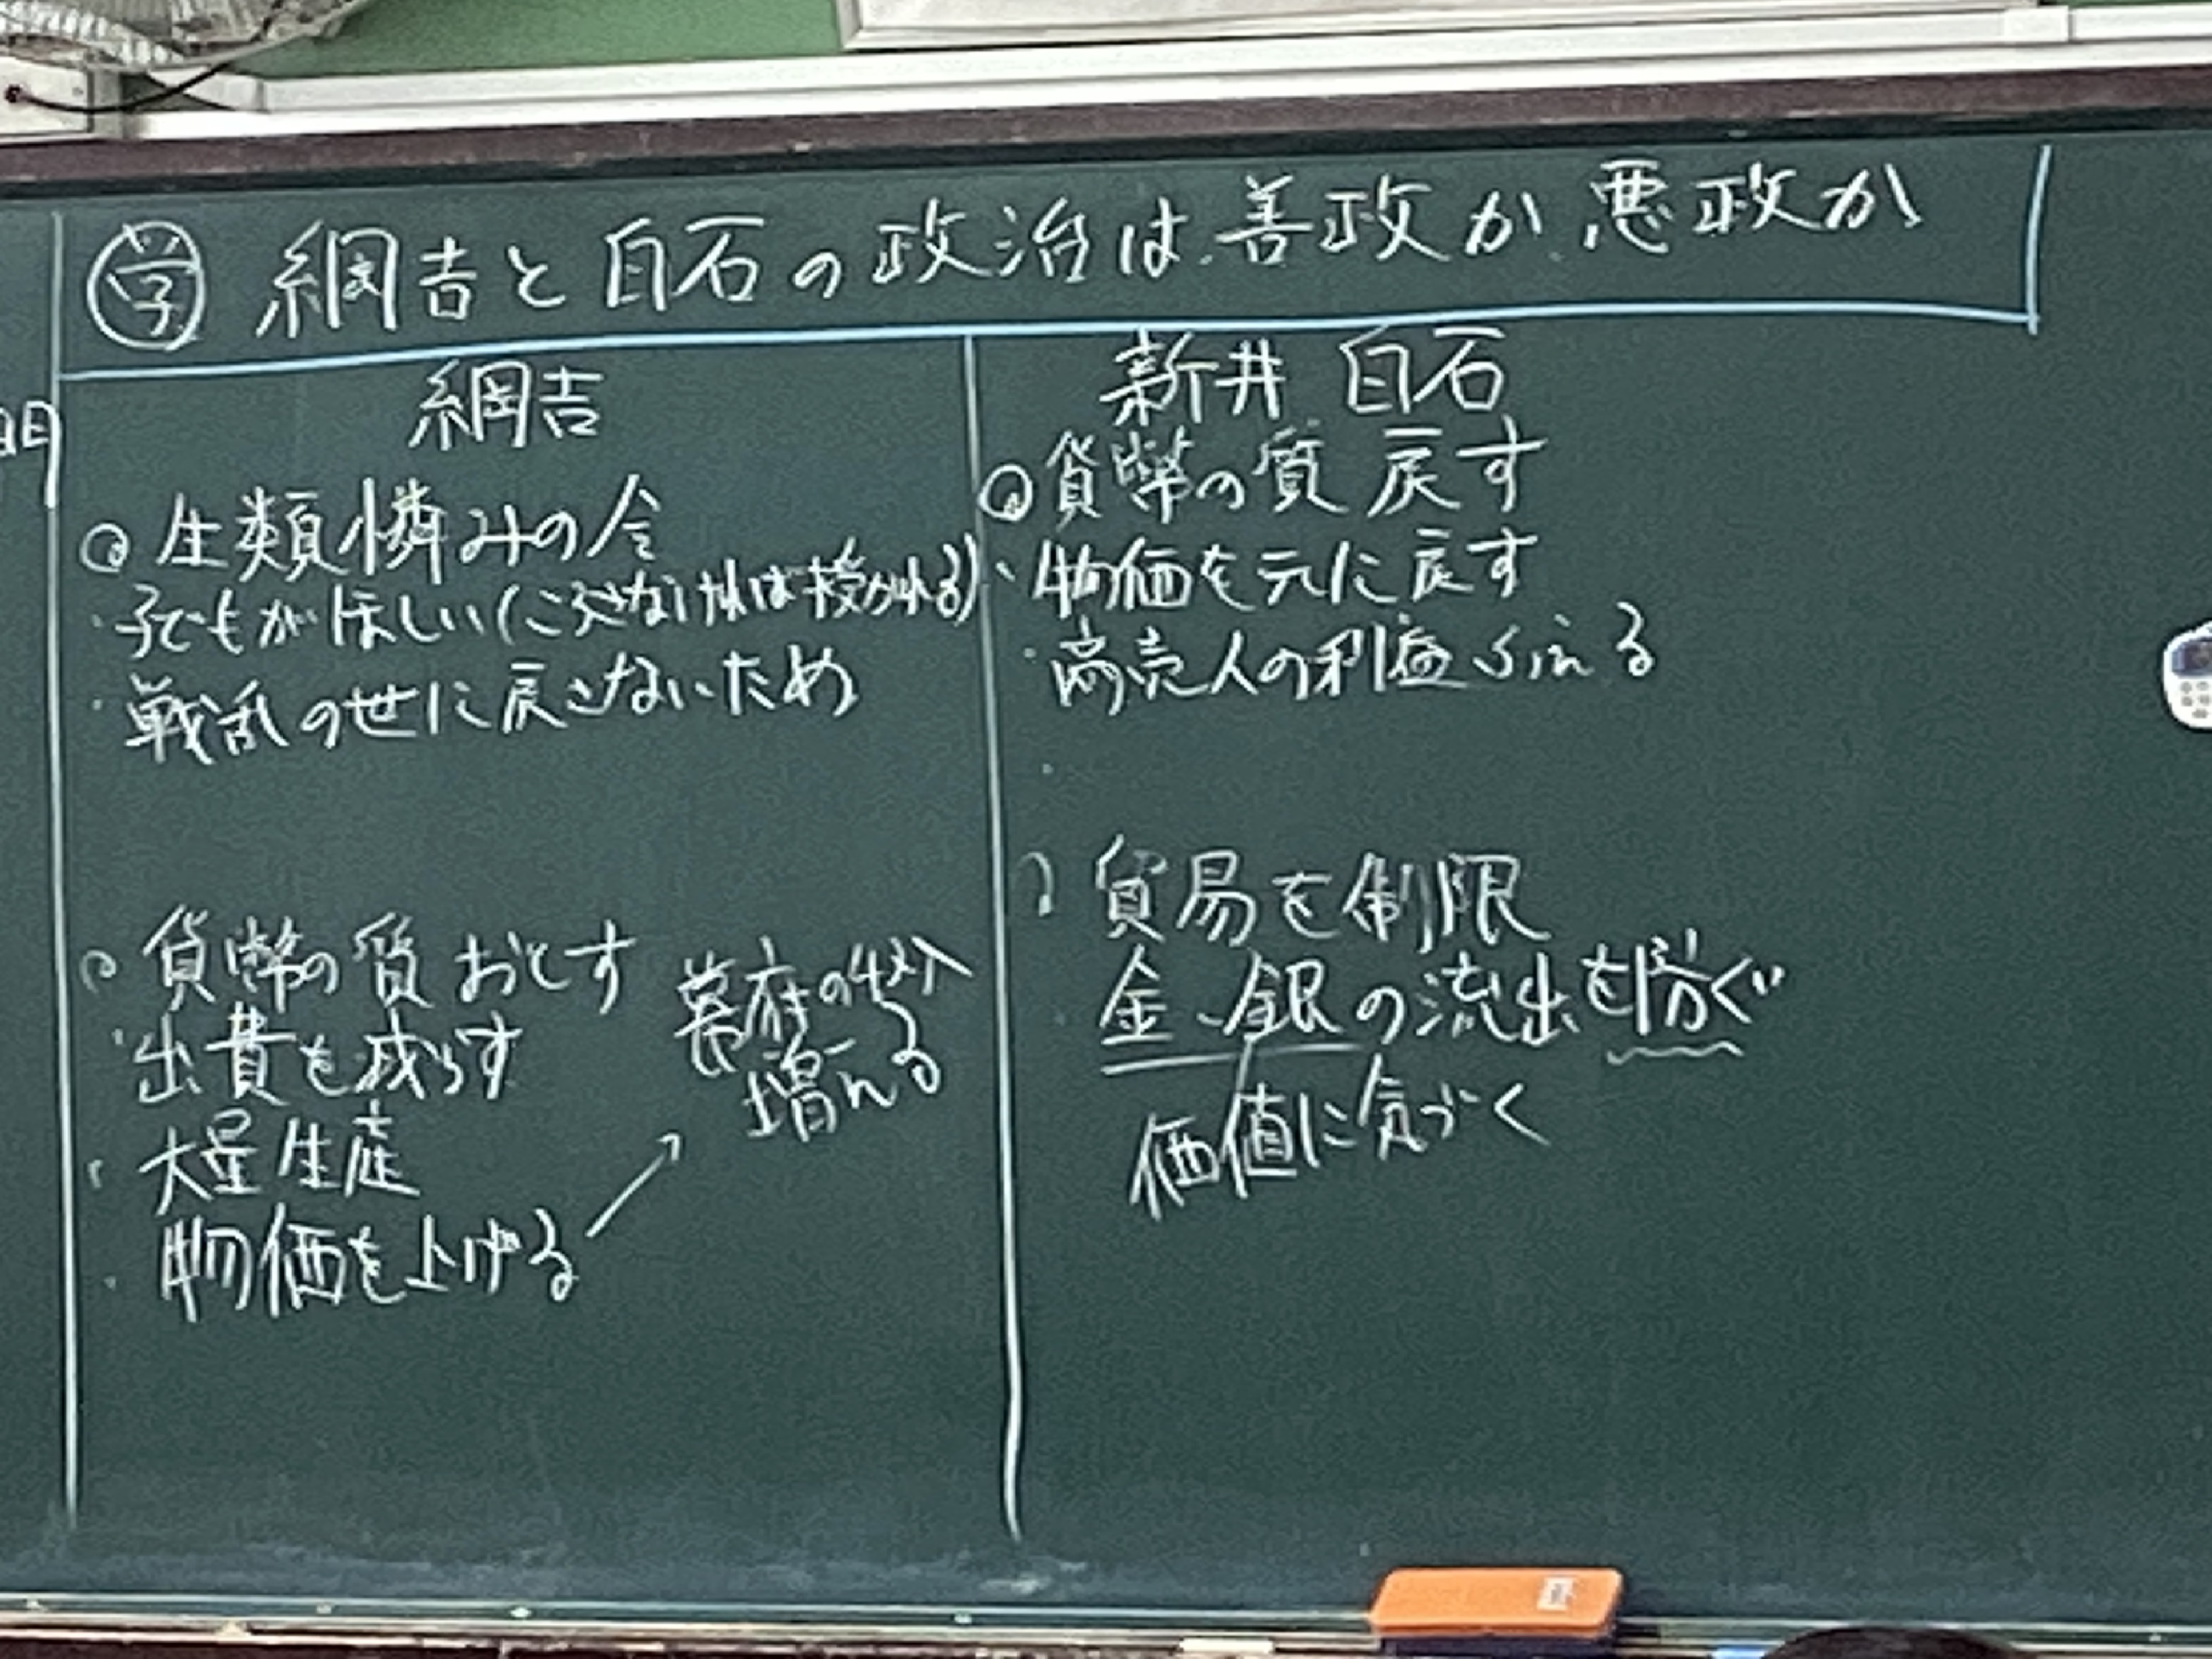 学 綱吉と白石の政治は、善政か、悪政か
綱吉
◎生類憐みの令
・子どもがほしい(ころさなければ授かれる)
・戦乱の世に戻さないため
○貨幣の質おとす
・出費を減らす
・大量生産
・物価を上げる
幕府の収入
増える
新井 白石
◎貨幣の質 戻す
・物価を元に戻す
・商売人の利益ふえる
・
○貿易を制限
・金、銀の流出を防ぐ
価値に気づく